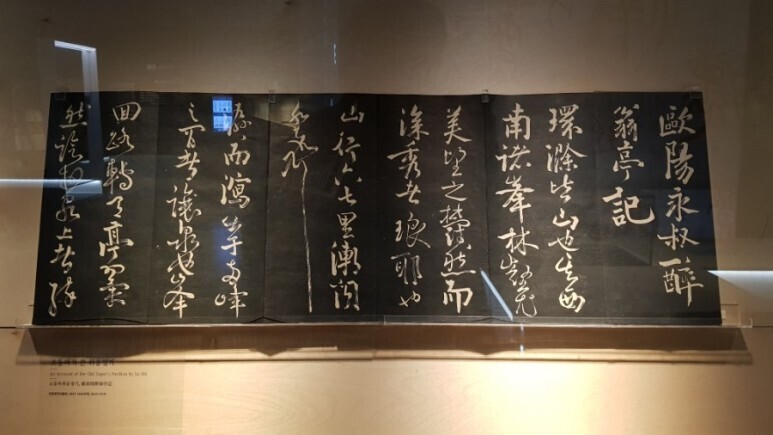 歐陽永叔醉
翁亭記
環滁皆山也其西
南諸峯林壑尤
美望之蔚然而
深秀者琅耶也
山行六七里漸聞
水聲
潺而瀉出于兩峰
之間者讓泉也峯
回路轉有亭翼
然臨於泉上者
소동파가 쓴 취옹정기
An Account of the Old Toper's Pavilion by Su Shi